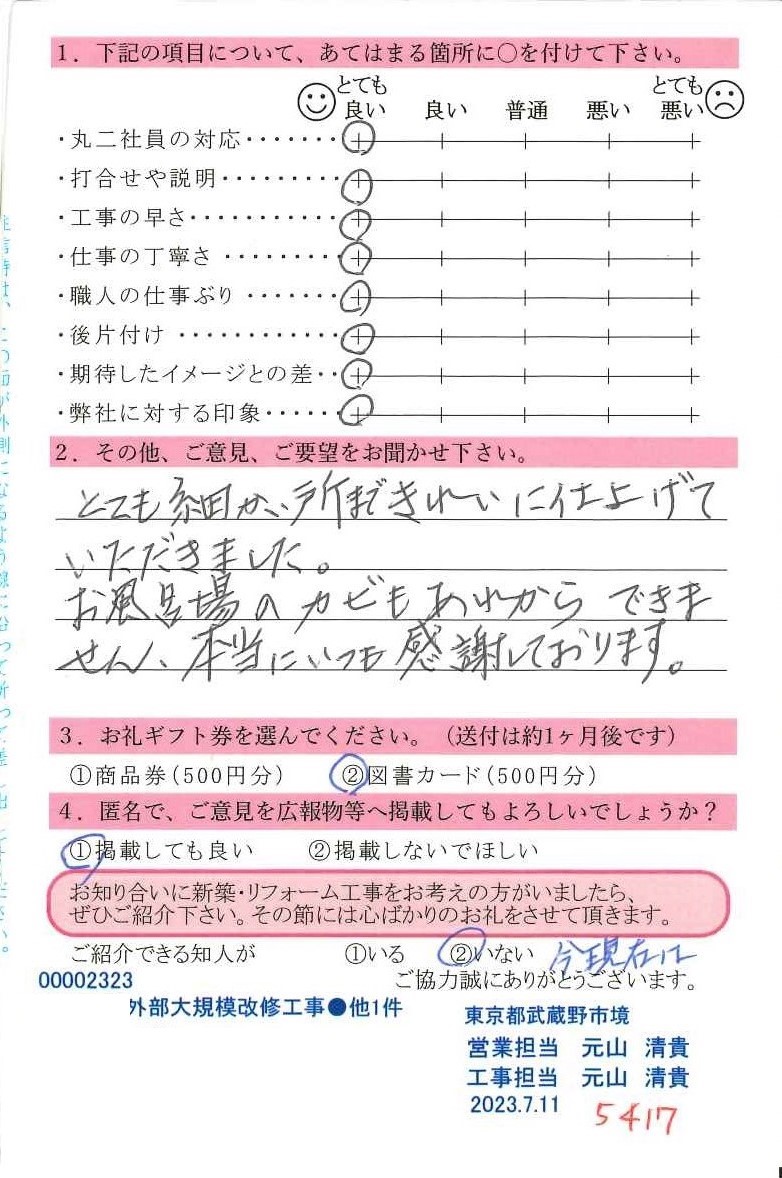 1．下記の項目について、あてはまる箇所に○を付けて下さい。
とても良い　良い　普通　悪い　とても悪い
・丸二社員の対応・・・・・・・
・打合せや説明・・・・・・・・
・工事の早さ・・・・・・・・・・
・仕事の丁寧さ ・・・・・・・・
・職人の仕事ぶり ・・・・・・・
・後片付け ・・・・・・・・・・・
・期待したイメージとの差・・
・弊社に対する印象・・・・・・
2．その他、ご意見、ご要望をお聞かせ下さい。
とても細かい所まできれーいに仕上げて
いただきました。
お風呂場のカビもあれからできま
せん、本当にいつも感謝しております。
3．お礼ギフト券を選んでください。（送付は約1ヶ月後です）
①商品券（500円分）　②図書カード（500円分）
4．匿名で、ご意見を広報物等へ掲載してもよろしいでしょうか？
①掲載しても良い　②掲載しないでほしい
お知り合いに新築・リフォーム工事をお考えの方がいましたら、
ぜひご紹介下さい。その節には心ばかりのお礼をさせて頂きます。
ご紹介できる知人が　①いる　②いない　今現在は
ご協力誠にありがとうございます。
00002323
外部大規模改修工事●他1件
東京都武蔵野市境
営業担当　元山　清貴
工事担当　元山　清貴
2023.7.11
5417